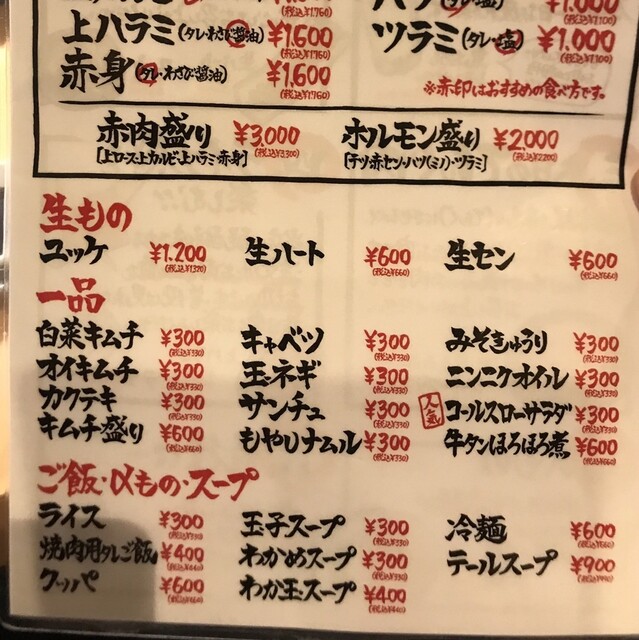 (税込¥1,760)
上ハラミ(タレ・わさび醤油) ¥1,600 (税込¥1,760)
赤身(タレ・わさび醤油) ¥1,600 (税込¥1,760)
¥1,000 (税込¥1,100)
ツラミ(タレ・塩) ¥1,000 (税込¥1,100)
※赤印はおすすめの食べ方です。
赤肉盛り ¥3,000 (税込¥3,300)
[上ロース・上カルビ・上ハラミ・赤身]
ホルモン盛り ¥2,000 (税込¥2,200)
[テツ・赤セン・ハツ(ミノ)・ツラミ]
生もの
ユッケ ¥1,200 (税込¥1,320) 生ハート ¥600 (税込¥660) 生セン ¥600 (税込¥660)
一品
白菜キムチ ¥300 (税込¥330) キャベツ ¥300 (税込¥330) みそきゅうり ¥300 (税込¥330)
オイキムチ ¥300 (税込¥330) 玉ネギ ¥300 (税込¥330) ニンニクオイル ¥300 (税込¥330)
カクテキ ¥300 (税込¥330) サンチュ ¥300 (税込¥330) 人気 コールスローサラダ ¥300 (税込¥330)
キムチ盛り ¥600 (税込¥660) もやしナムル ¥300 (税込¥330) 牛タンほろほろ煮 ¥600 (税込¥660)
ご飯・αもの・スープ
ライス ¥300 (税込¥330) 玉子スープ ¥300 (税込¥330) 冷麺 ¥600 (税込¥660)
焼肉用タレご飯 ¥400 (税込¥440) わかめスープ ¥300 (税込¥330) テールスープ ¥900 (税込¥990)
クッパ ¥600 (税込¥660) わか玉スープ ¥400 (税込¥440)